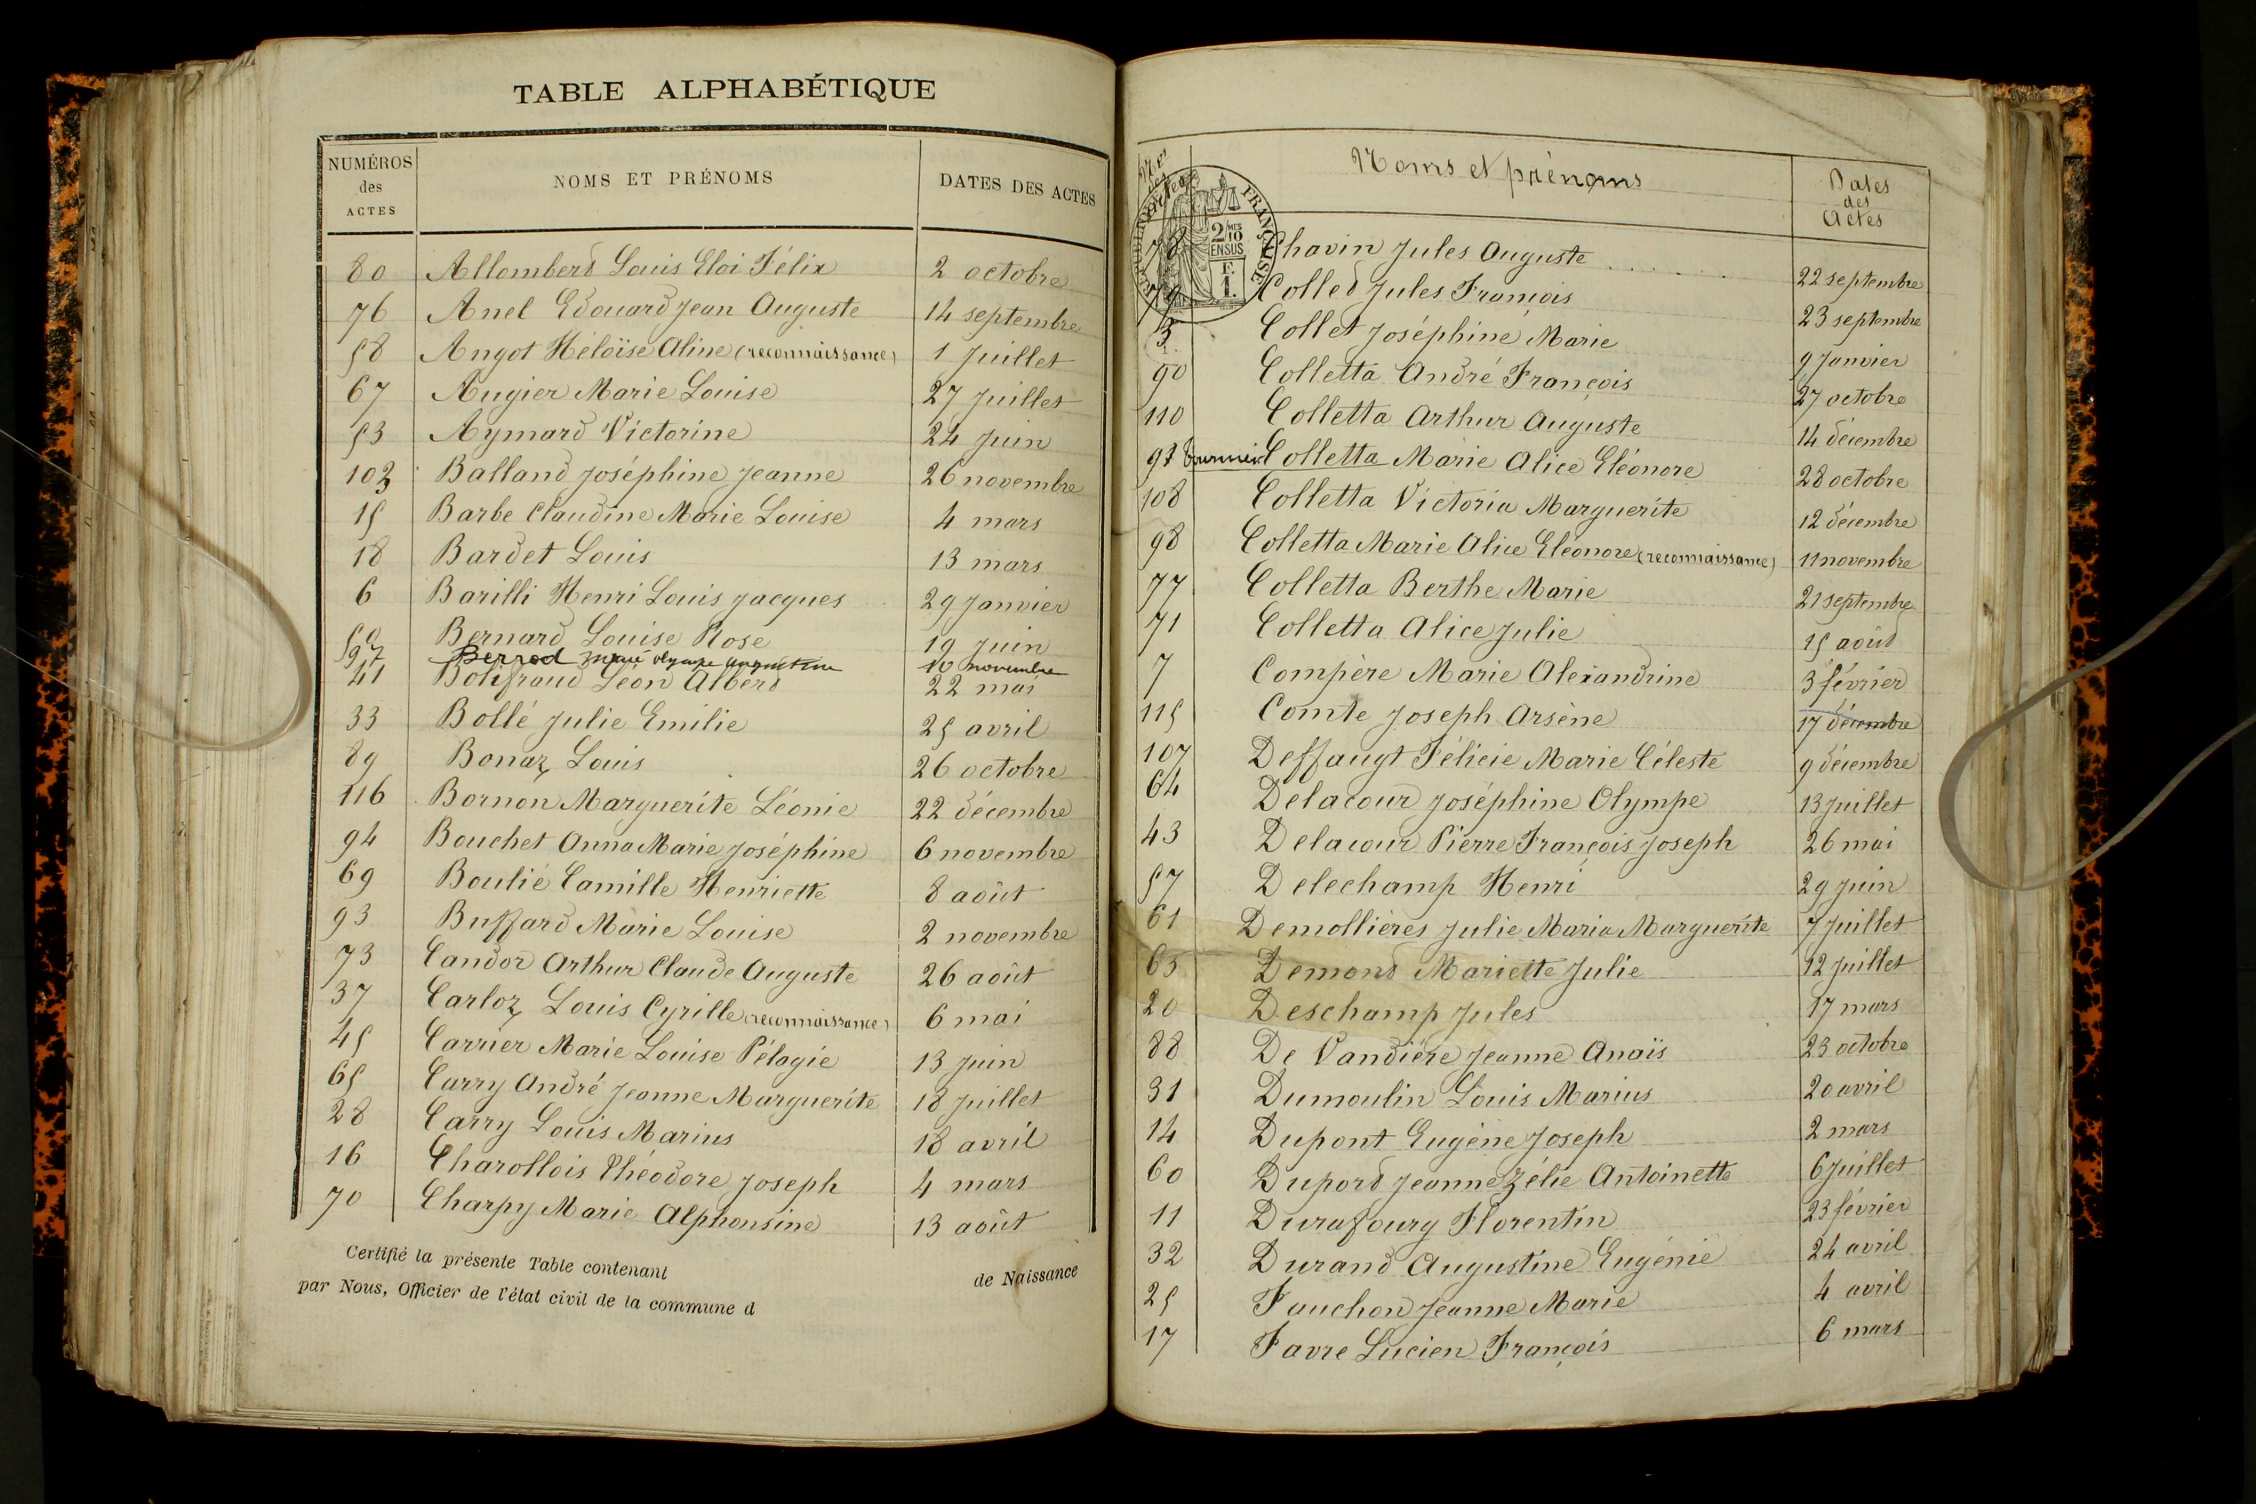 TABLE ALPHABÉTIQUE
NUMÉROS des ACTES NOMS ET PRÉNOMS DATES DES ACTES
80 Allomberd Louis Eloi Félix 2 octobre
76 Anel Edouard Jean Auguste 14 septembre
58 Angot Héloïse Aline (reconnaissance) 1 Juillet
67 Augier Marie Louise 27 Juillet
53 Aymard Victorine 24 Juin
103 Balland Joséphine Jeanne 26 novembre
15 Barbe Claudine Marie Louise 4 mars
18 Bardet Louis 13 mars
6 Barilli Henri Louis Jacques 29 Janvier
Bernard Louise Rose 19 Juin
97 Berrod olympe augustine 10 novembre
41 Léon Albert 22 mai
33 Bollé Julie Emilie 25 avril
89 Bonaz Louis 26 octobre
116 Bornon Marguerite Léonie 22 décembre
94 Bouchet Anna Marie Joséphine 6 novembre
69 Boulié Camille Henriette 8 août
93 Buffard Marie Louise 2 novembre
73 Candor Arthur Claude Auguste 26 août
37 Carloz Louis Cyrille (reconnaissance) 6 mai
45 Carrier Marie Louise Pélagie 13 Juin
65 Carry André Jeanne Marguerite 18 Juillet
28 Carry Louis Marius 18 avril
16 Charollois Théodore Joseph 4 mars
70 Charpy Marie Alphonsine 13 août
Certifié la présente Table contenant de Naissance
par Nous, Officier de l'état civil de la commune d
Nos des Actes Noms et prénoms Dates des Actes
RÉPUBLIQUE FRANÇAISE
2/10 MES
EN SUS
F.
1.
78 Chavin Jules Auguste 22 septembre
79 Colled Jules François 23 septembre
3 Collet Joséphine Marie 9 Janvier
90 Colletta André François 27 octobre
110 Colletta Arthur Auguste 14 décembre
91 Fournier Colletta Marie Alice Eléonore 28 octobre
108 Colletta Victoria Marguerite 12 décembre
98 Colletta Marie Alice Eléonore (reconnaissance) 11 novembre
77 Colletta Berthe Marie 21 septembre
71 Colletta Alice Julie 15 août
7 Compère Marie Alexandrine 3 février
115 Comte Joseph Arsène 17 décembre
107 Deffaugt Félicie Marie Céleste 9 décembre
64 Delacour Joséphine Olympe 13 Juillet
43 Delacour Pierre François Joseph 26 mai
57 Delechamp Henri 29 Juin
61 Demollières Julie Maria Marguerite 7 Juillet
63 Demond Mariette Julie 12 Juillet
20 Deschamp Jules 17 mars
88 De Vandière Jeanne Anaïs 23 octobre
31 Dumoulin Louis Marius 20 avril
14 Dupont Eugène Joseph 2 mars
60 Dupord Jeanne Zélie Antoinette 6 Juillet
11 Durafourg Florentin 23 février
32 Durand Augustine Eugénie 24 avril
25 Fauchon Jeanne Marie 4 avril
17 Favre Lucien François 6 mars